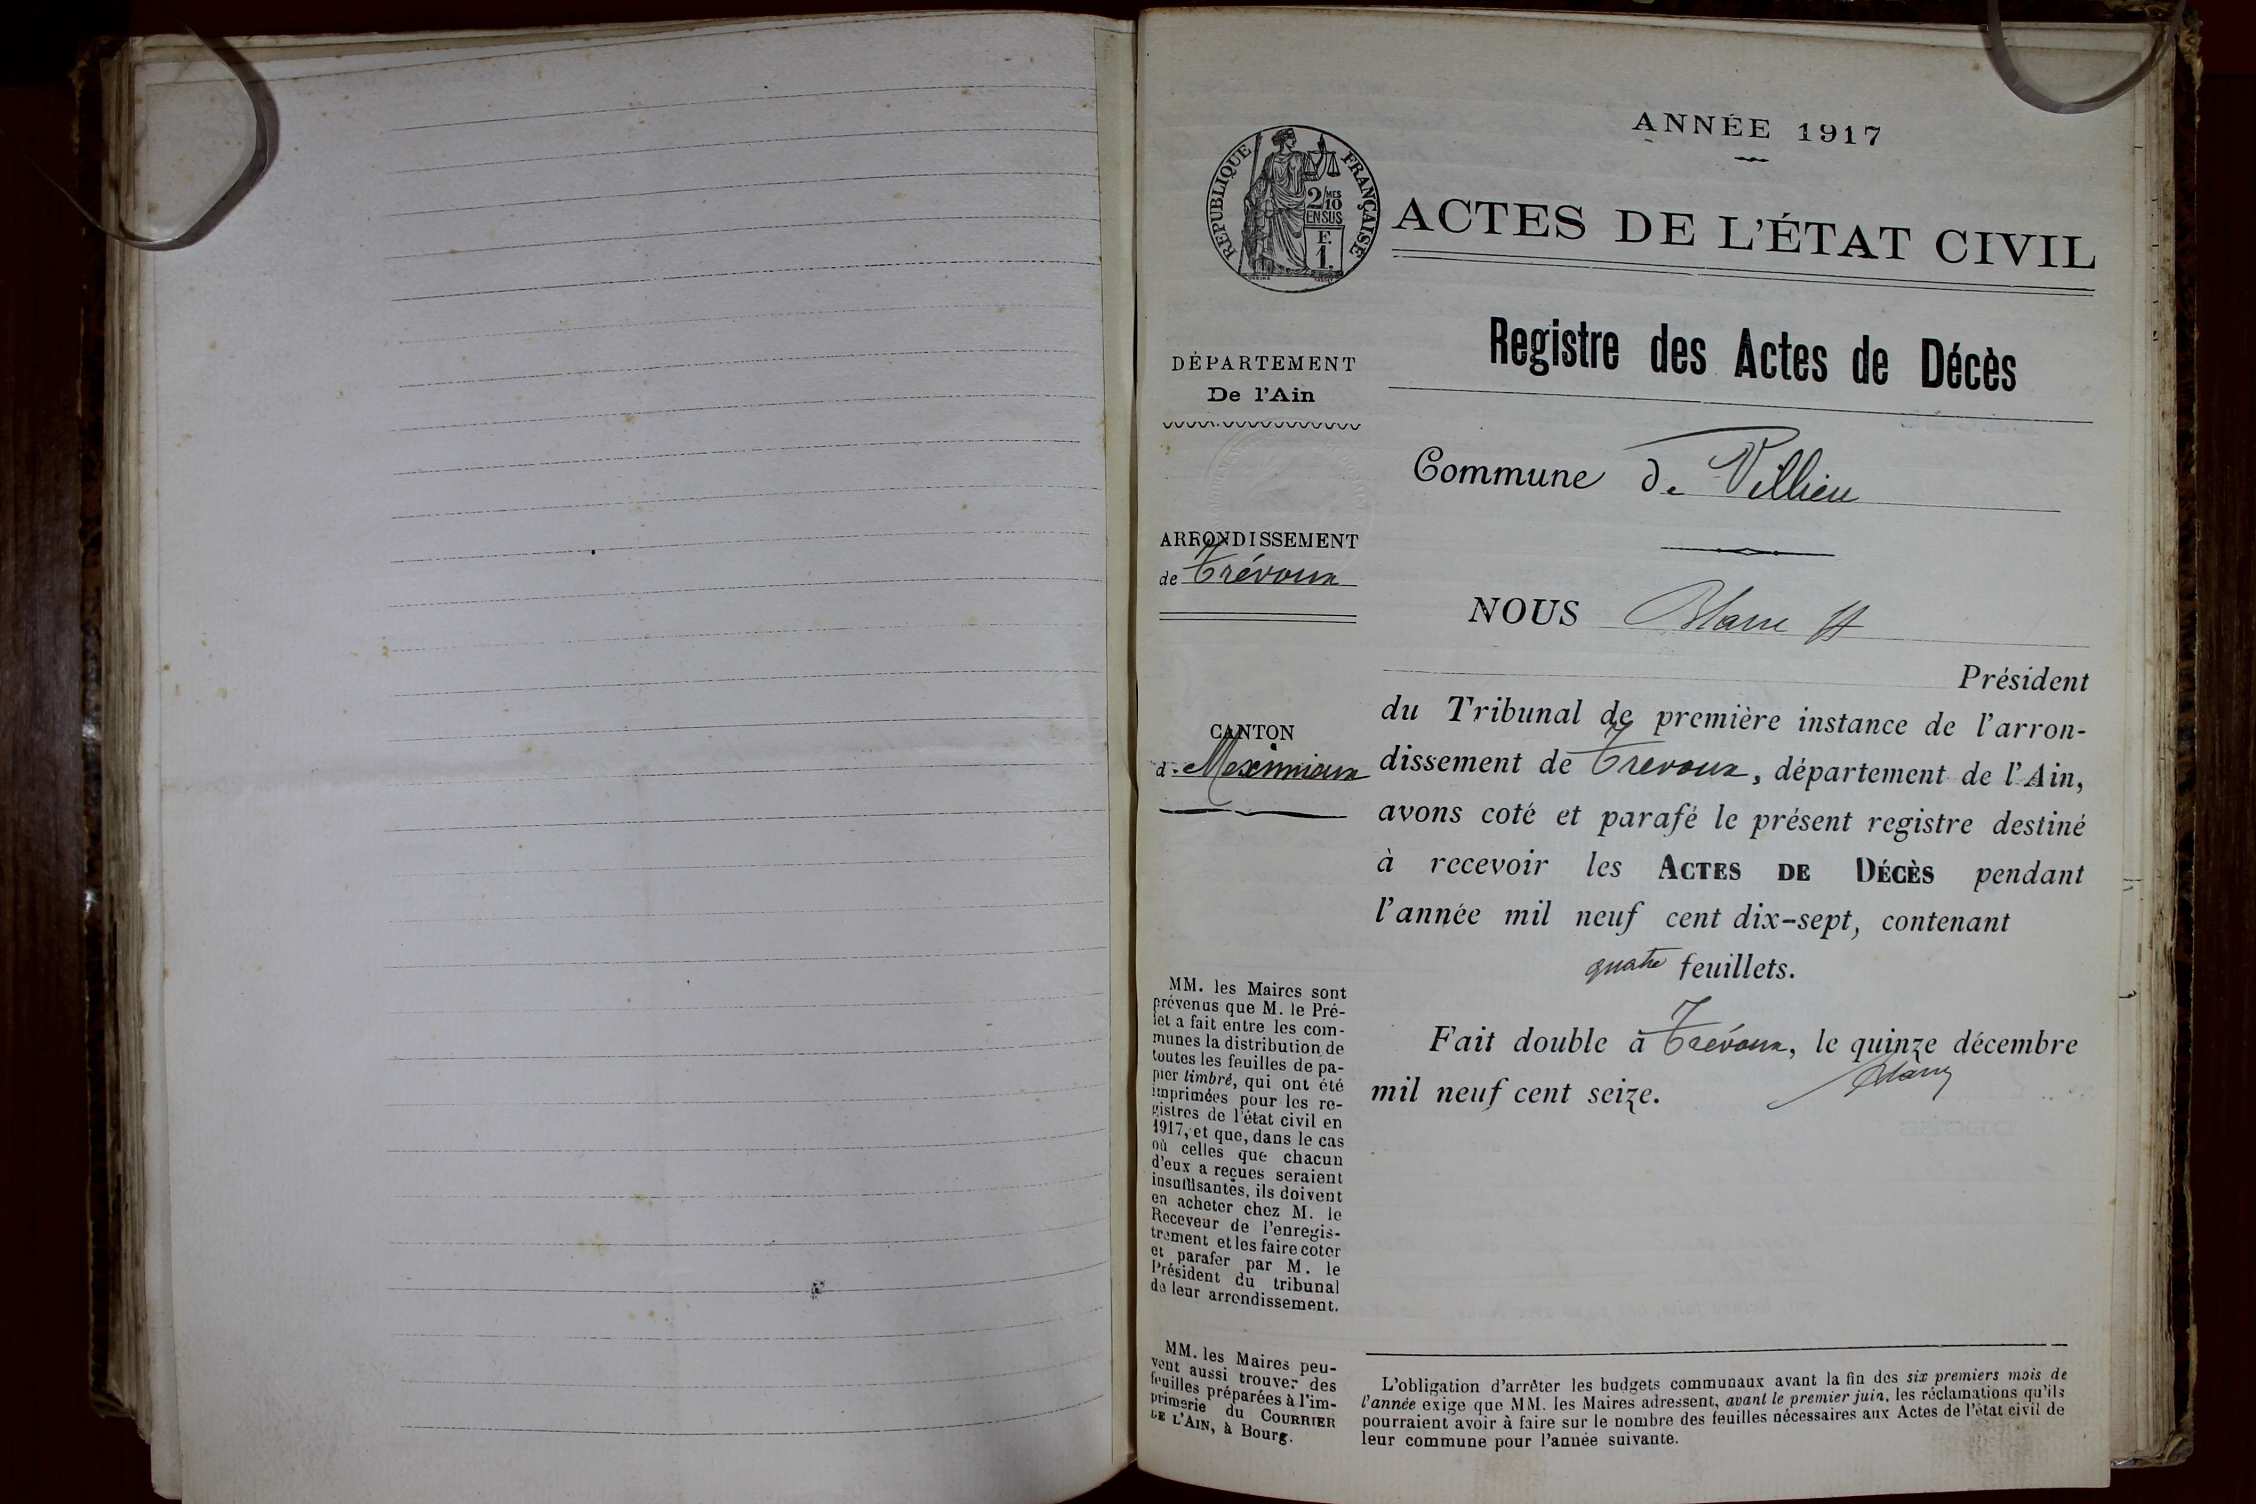 ANNÉE 1917
RÉPUBLIQUE FRANÇAISE
2/MES
10
EN SUS
F.
1.
ACTES DE L'ÉTAT CIVIL
Registre des Actes de Décès
DÉPARTEMENT
De l'Ain
Commune de Villieu
ARRONDISSEMENT
de Trévoux
NOUS Blanc
Président
du Tribunal de première instance de l'arron-
dissement de Trevoux, département de l'Ain,
avons coté et parafé le présent registre destiné
à recevoir les ACTES DE DÉCÈS pendant
l'année mil neuf cent dix-sept, contenant
quatre feuillets.
Fait double à Trévoux, le quinze décembre
mil neuf cent seize.
Blanc
CANTON
de Meximieux
MM. les Maires sont
prévenus que M. le Pré-
fet a fait entre les com-
munes la distribution de
toutes les feuilles de pa-
pier timbré, qui ont été
imprimées pour les re-
gistres de l'état civil en
1917, et que, dans le cas
où celles que chacun
d'eux a reçues seraient
insuffisantes, ils doivent
en acheter chez M. le
Receveur de l'enregis-
trement et les faire coter
et parafer par M. le
Président du tribunal
de leur arrondissement.
MM. les Maires peu-
vent aussi trouver des
feuilles préparées à l'im-
primerie du COURRIER
DE L'AIN, à Bourg.
L'obligation d'arrêter les budgets communaux avant la fin des six premiers mois de
l'année exige que MM. les Maires adressent, avant le premier juin, les réclamations qu'ils
pourraient avoir à faire sur le nombre des feuilles nécessaires aux Actes de l'état civil de
leur commune pour l'année suivante.